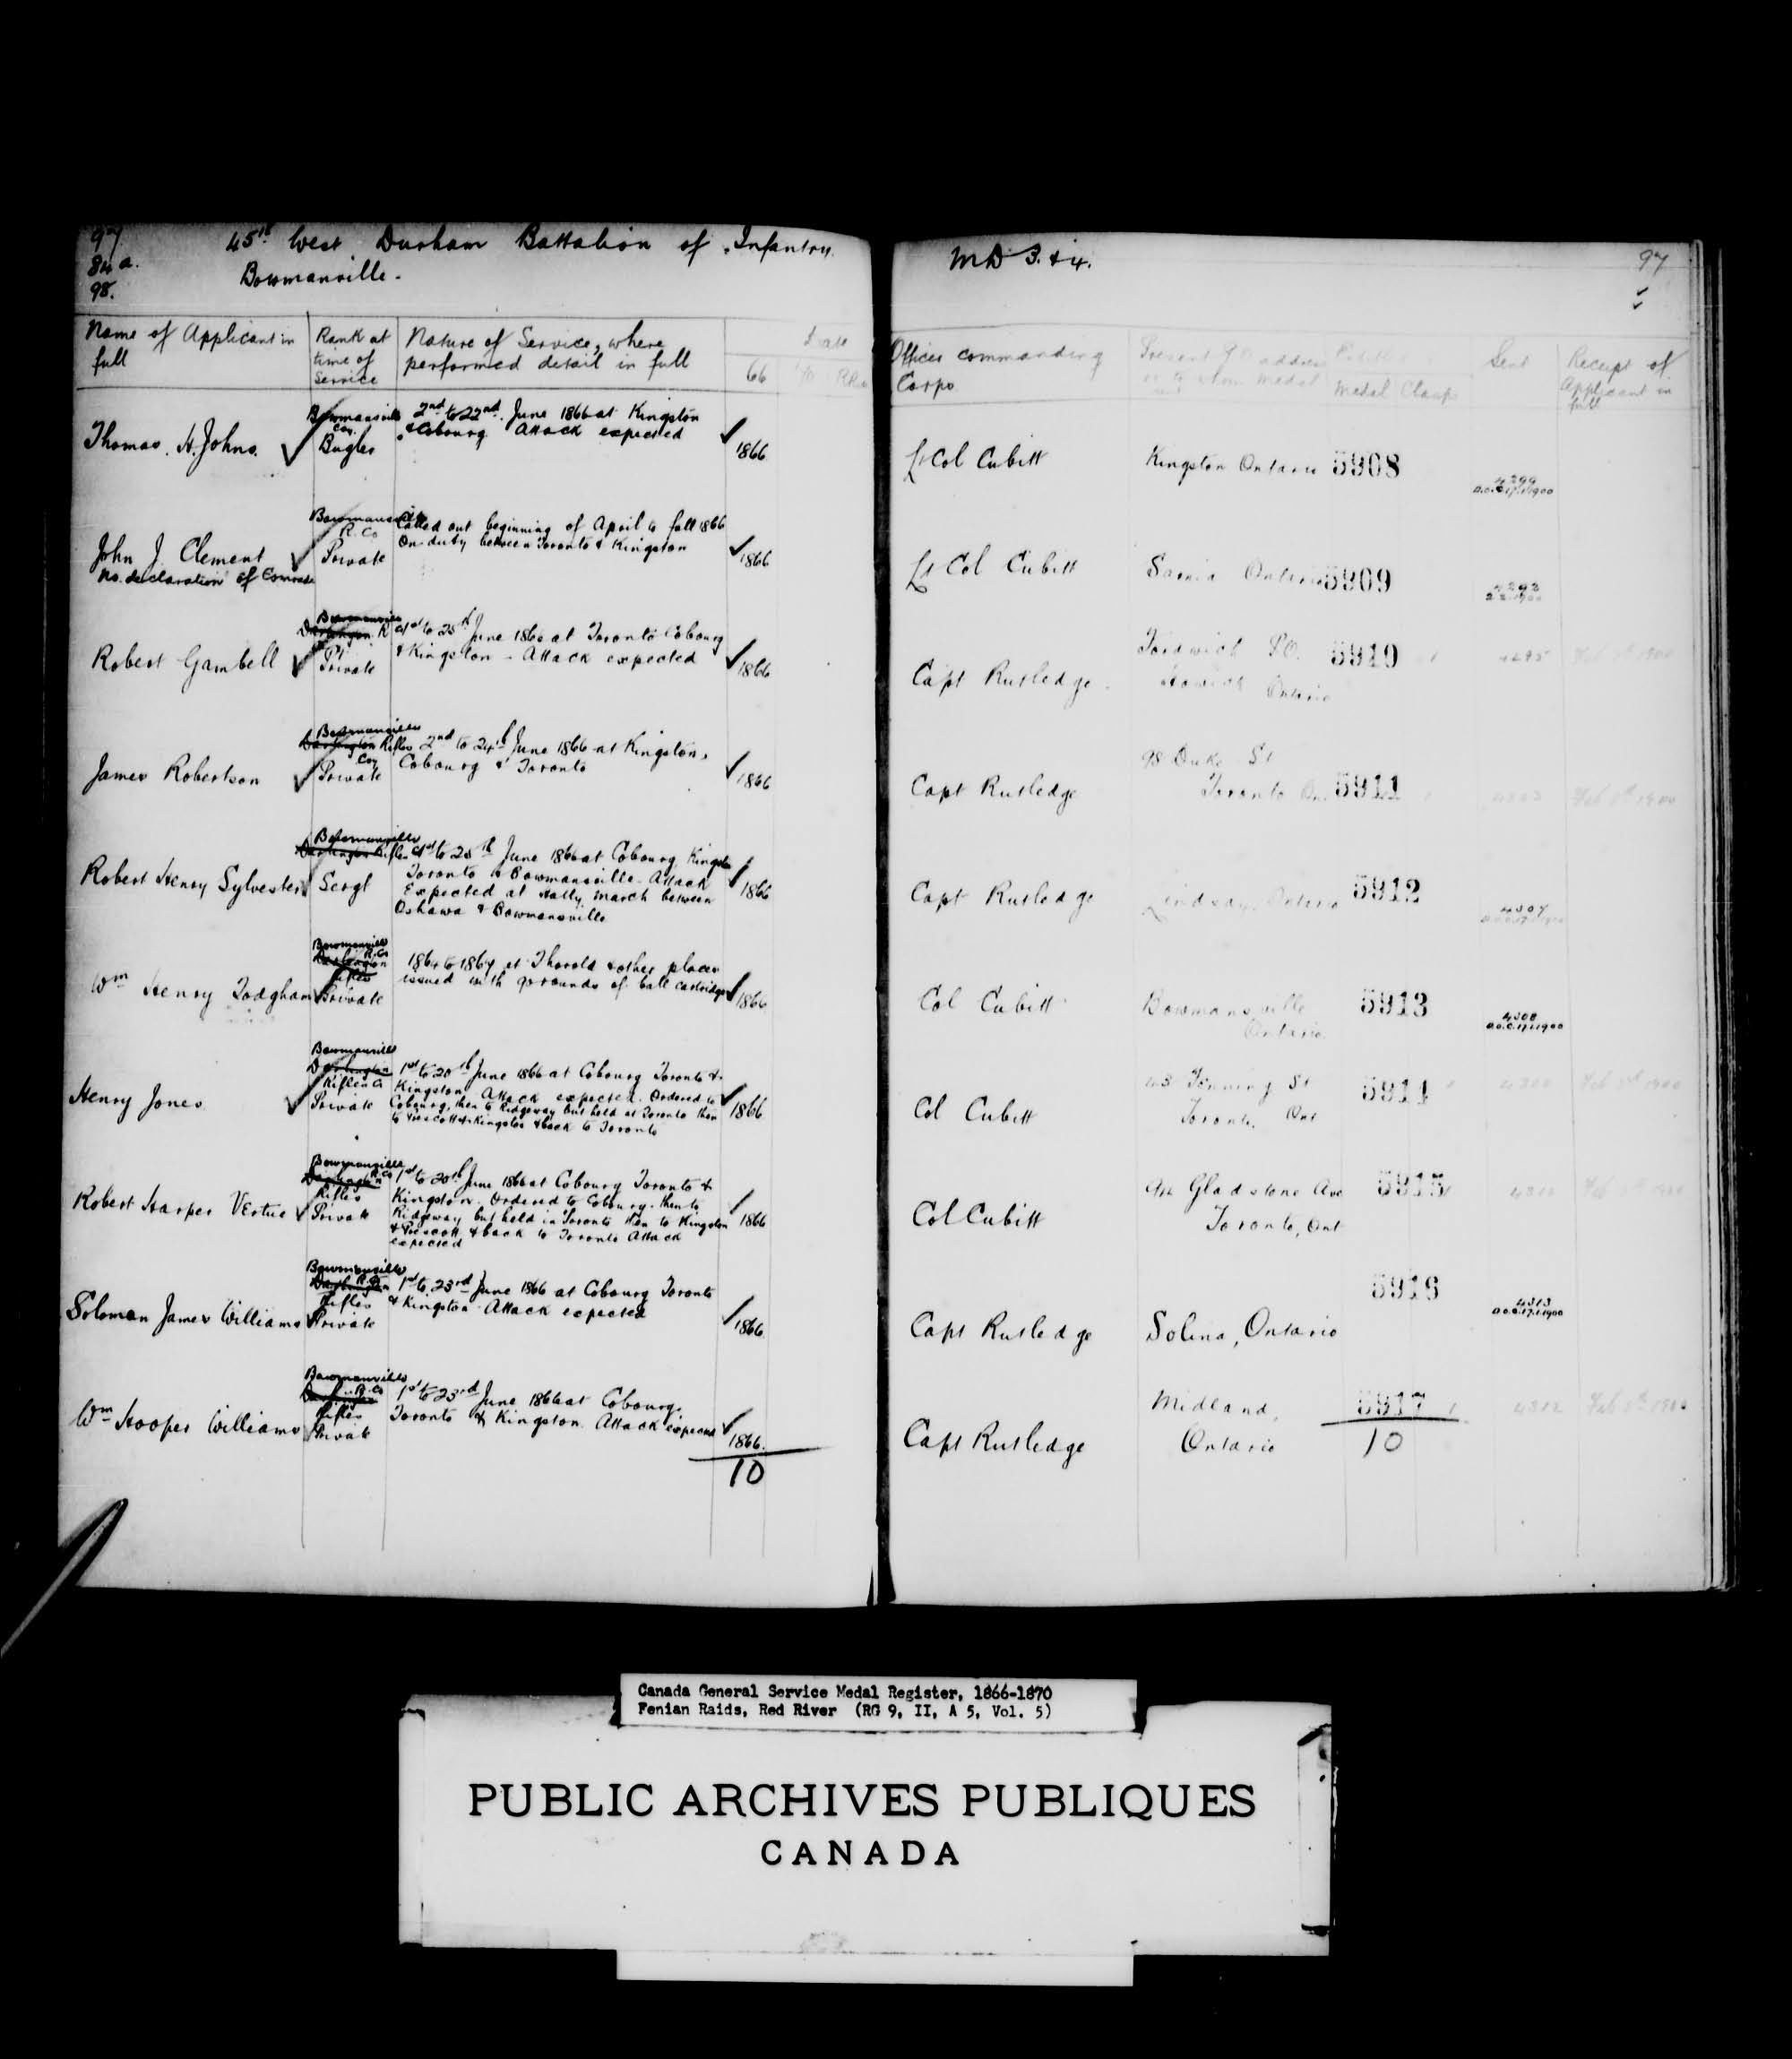 97
84a.
98.
45th West Durham Battalion of Infantry.
Bowmanville.
Name of Applicant in full
Rank at time of Service
Nature of Service, where performed detail in full
Date
66
70
Thomas. H. Johns.
Bowmanville Coy.
Bugler
2nd to 22nd June 1866 at Kingston
& Cobourg Attack expected
1866
John J. Clement
No declaration of Comrade
Bowmanville
R. Co
Private
Called out beginning of April to fall 1866
On duty between Toronto & Kingston
1866
Robert Gambell
Bowmanville
Darlington R
Private
1st to 25th June 1866 at Toronto Cobourg
& Kingston - Attack expected
1866
James Robertson
Bowmanville
Darlington Rifles
Coy
Private
2nd to 24th June 1866 at Kingston,
Cobourg & Toronto
1866
Robert Henry Sylvester
Bowmanville
Darlington Rifles
Sergt
1st to 25th June 1866 at Cobourg, Kingston
Toronto & Bowmanville - Attack
Expected at march between
Oshawa & Bowmanville
1866
Wm Henry Todgham
Bowmanville
R. Co
Darlington
Rifles
Private
at Thorold & other places
issued with rounds of ball cartridge
1866
Henry Jones
Bowmanville
Darlington
Rifles Co
Private
1st to 20th June 1866 at Cobourg Toronto &
Kingston Attack expected. Ordered to
Cobourg, then to Ridgeway but held at Toronto then
to Prescott & Kingston & back to Toronto
1866
Robert Harper Vertue
Bowmanville
R. Co
Darlington
Rifles
Private
1st to 20th June 1866 at Cobourg Toronto &
Kingston. Ordered to Cobourg - then to
Ridgeway but held in Toronto then to Kingston
& Prescott & back to Toronto Attack
expected
1866
Soloman James Williams
Bowmanville
R. Co
Darlington
Rifles
Private
1st to 23rd June 1866 at Cobourg Toronto
& Kingston - Attack expected
1866
Wm Hooper Williams
Bowmanville
R. Co
Rifles
Private
1st to 23rd June 1866 at Cobourg.
Toronto & Kingston. Attack expected
1866.
10
MD 3. & 4.
97
Officer commanding Corps
Present P.O. address
Medal Clasps
Sent
Receipt of Applicant in full
Lt Col Cubitt
Kingston Ontario
5908
4299
Lt Col Cubitt
Sarnia Ontario
5909
Capt Rutledge
Fordwich P.O.
Howick Ontario
5910
4295
Capt Rutledge
98 Duke St
Toronto On.
5911
Capt Rutledge
Lindsay, Ontario
5912
Col Cubitt
Bowmanville
Ontario.
5913
4308
Col Cubitt
Toronto, Ont
5914
Col Cubitt
Gladstone Ave
Toronto, Ont
5915
Capt Rutledge
Solina, Ontario
5916
4313
Capt Rutledge
Midland,
Ontario
5917
4312
10
Canada General Service Medal Register, 1866-1870
Fenian Raids, Red River (RG 9, II, A 5, Vol. 5)
PUBLIC ARCHIVES PUBLIQUES
CANADA